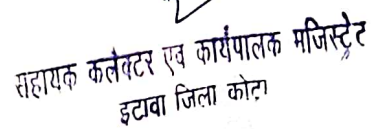 सहायक कलेक्टर एव कार्यपालक मजिस्ट्रेट
इटावा जिला कोटा